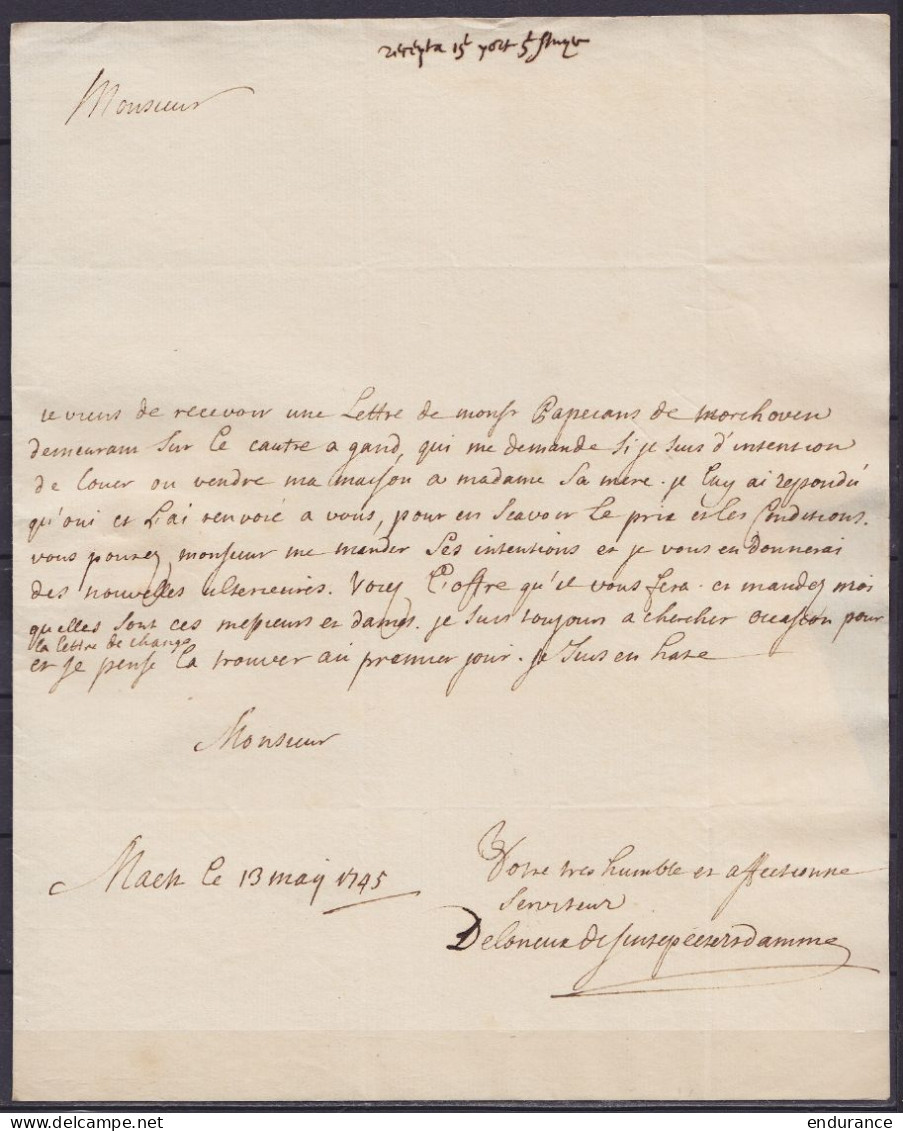 recepta 15 port 5
Monsieur
je viens de recevoir une Lettre de monsr Papeians de morchoven
demeurant sur Le cautre a gand, qui me demande si je suis d'intention
de Louer ou vendre ma maison a madame Sa mere. je Luy ai respondu
qu'oui et L'ai renvoié a vous, pour en Scavoir Le prix et les Conditions.
vous pouvez monsieur me mander Ses intentions et je vous en donnerai
des nouvelles ulterieures. Voicy L'offre qu'il vous fera. et mandez moi
quelles sont ces messieurs et dames. je suis toujours a chercher occasion pour
la lettre de change
et je pense La trouver au premier jour. je suis en hate
Monsieur
Votre tres humble et affectionné
Mach Le 13 maij 1745
Serviteur